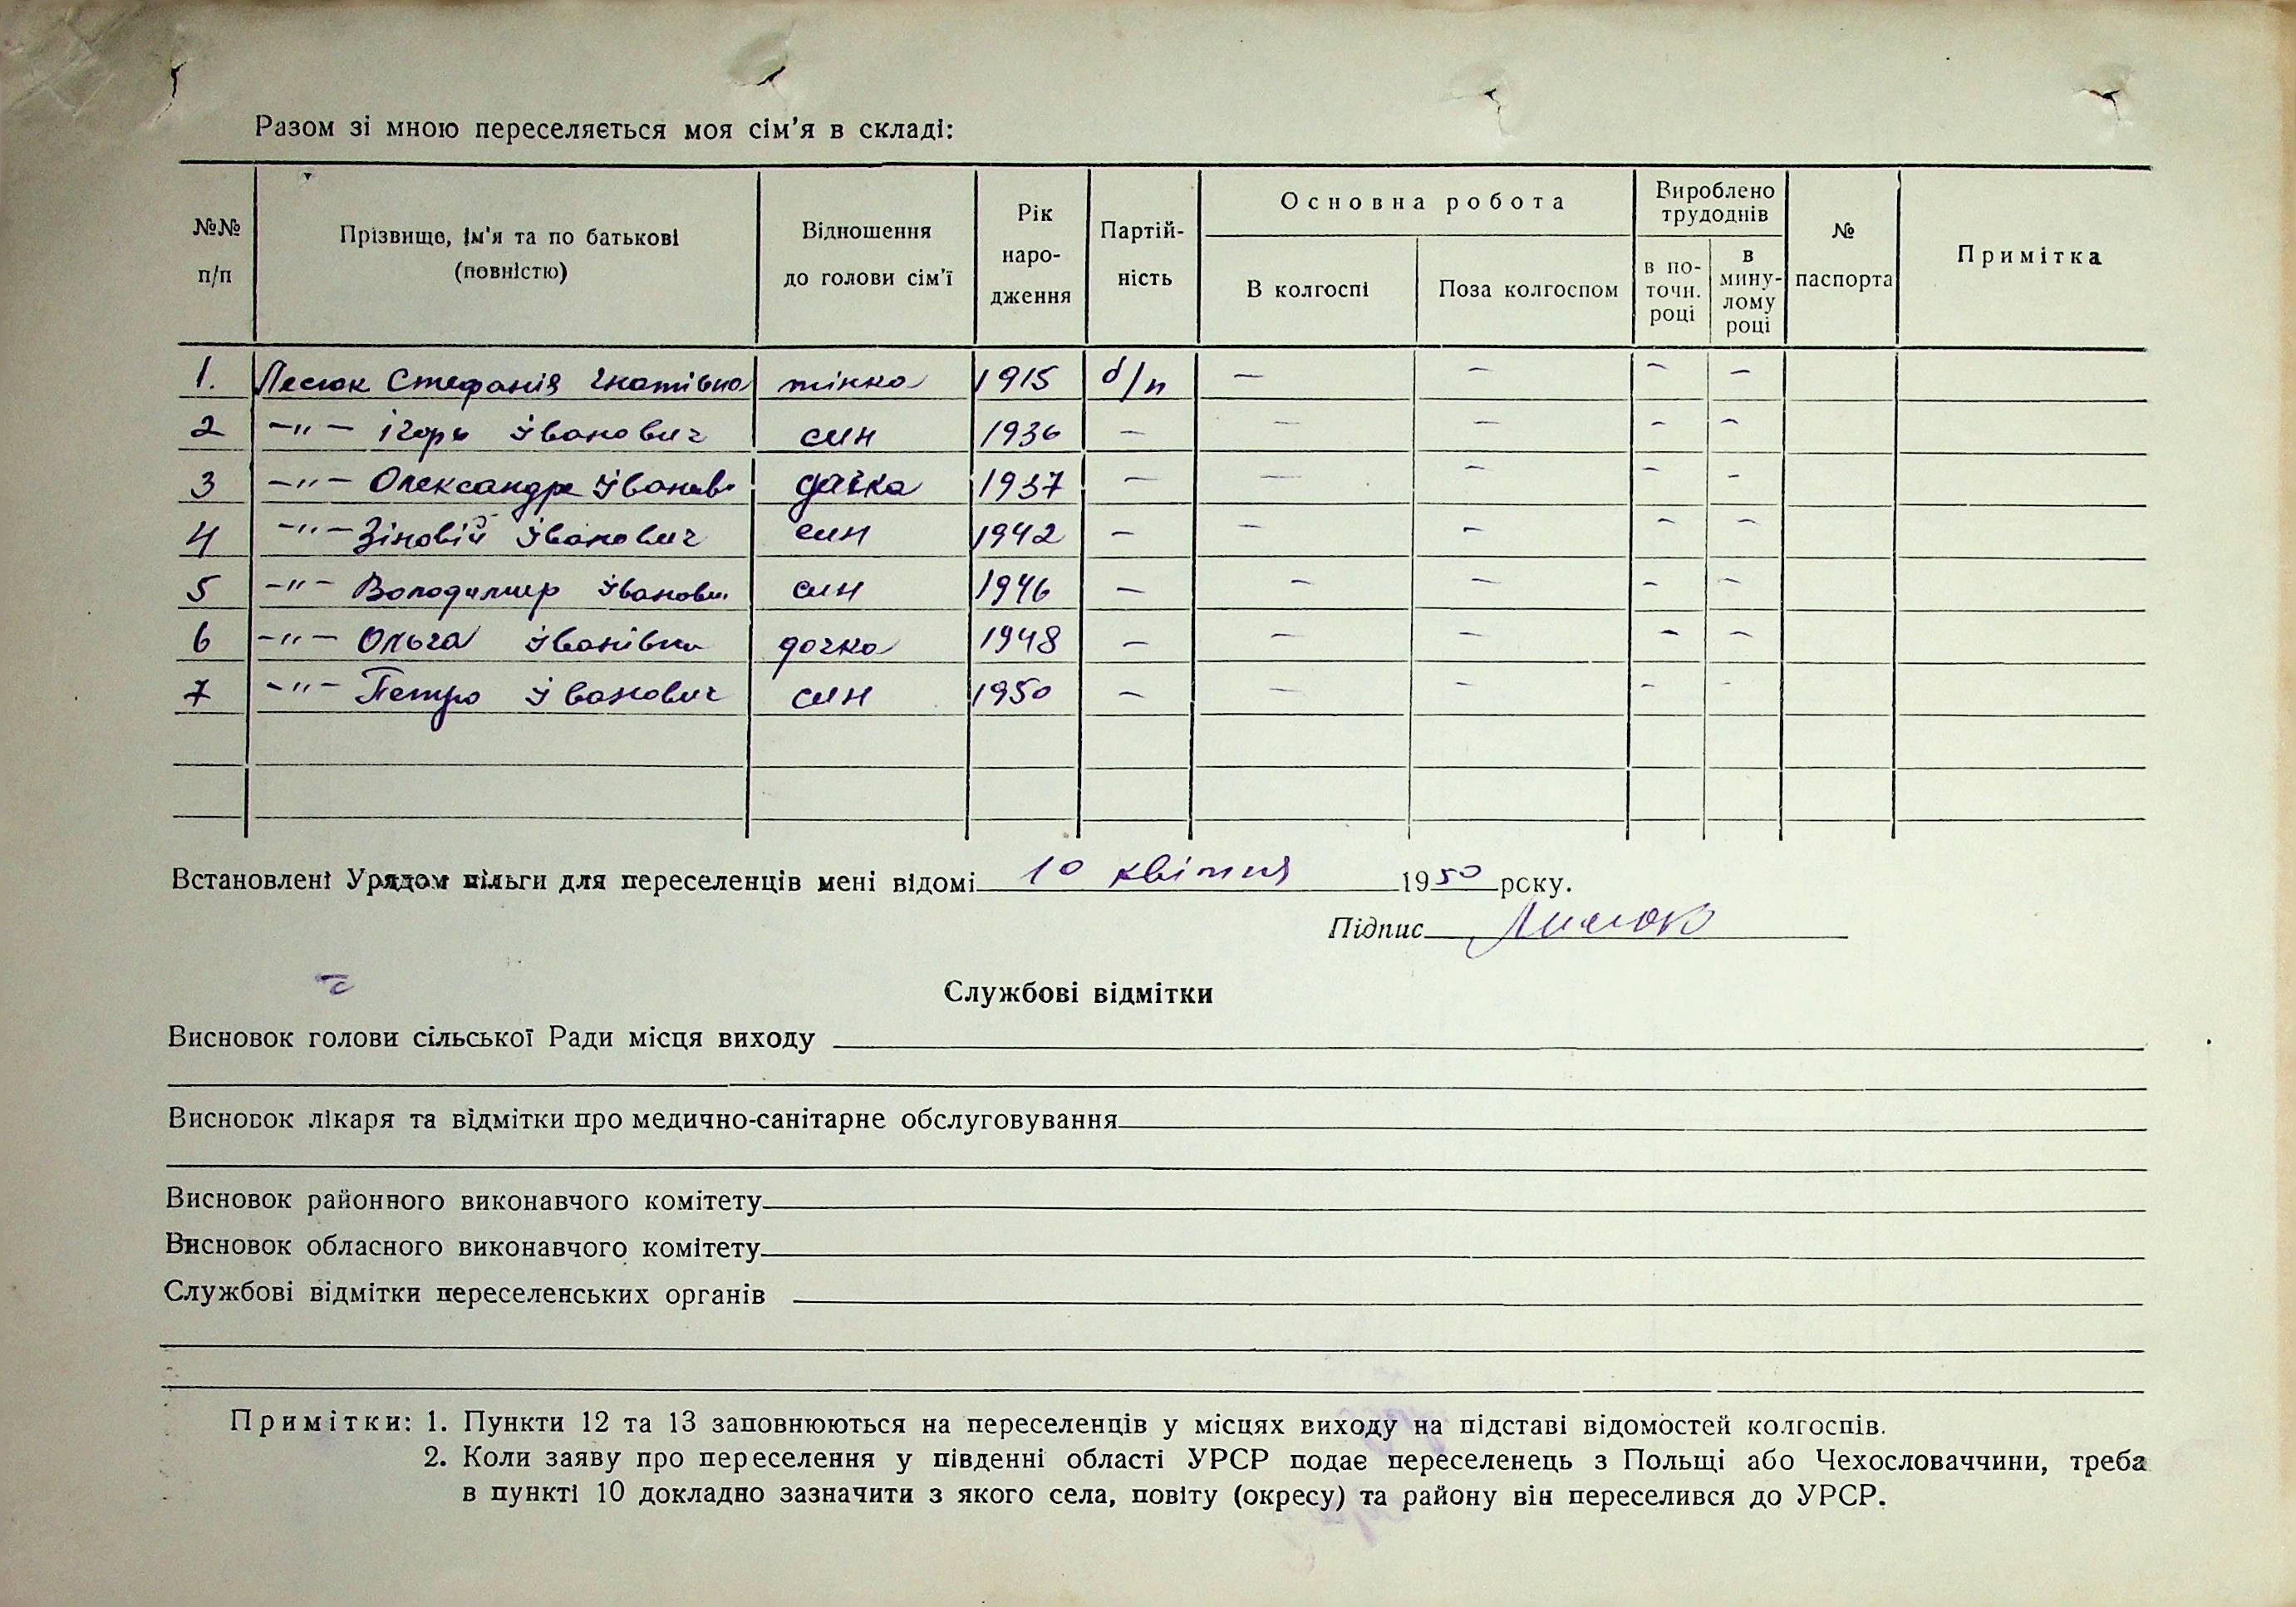 Разом зі мною переселяється моя сім'я в складі:
№№ п/п | Прізвище, ім'я та по батькові (повністю) | Відношення до голови сім'ї | Рік народження | Партій-ність | Основна робота | Вироблено трудоднів | № паспорта | Примітка
В колгоспі | Поза колгоспом | в по-точн. році | в мину-лому році
1. Лесюк Стефанія Гнатівна жінка 1915 б/п — — — —
2 —"— Ігорь Іванович син 1936 — — — — —
3 —"— Олександра Іванів дочка 1937 — — — — —
4 —"— Зіновій Іванович син 1942 — — — — —
5 —"— Володимир Іванови син 1946 — — — — —
6 —"— Ольга Іванівна дочка 1948 — — — — —
7 —"— Петро Іванович син 1950 — — — — —
Встановлені Урядом пільги для переселенців мені відомі 10 квітня 1950 року.
Підпис
Службові відмітки
Висновок голови сільської Ради місця виходу
Висновок лікаря та відмітки про медично-санітарне обслуговування
Висновок районного виконавчого комітету
Висновок обласного виконавчого комітету
Службові відмітки переселенських органів
Примітки: 1. Пункти 12 та 13 заповнюються на переселенців у місцях виходу на підставі відомостей колгоспів.
2. Коли заяву про переселення у південні області УРСР подає переселенець з Польщі або Чехословаччини, треба
в пункті 10 докладно зазначити з якого села, повіту (окресу) та району він переселився до УРСР.